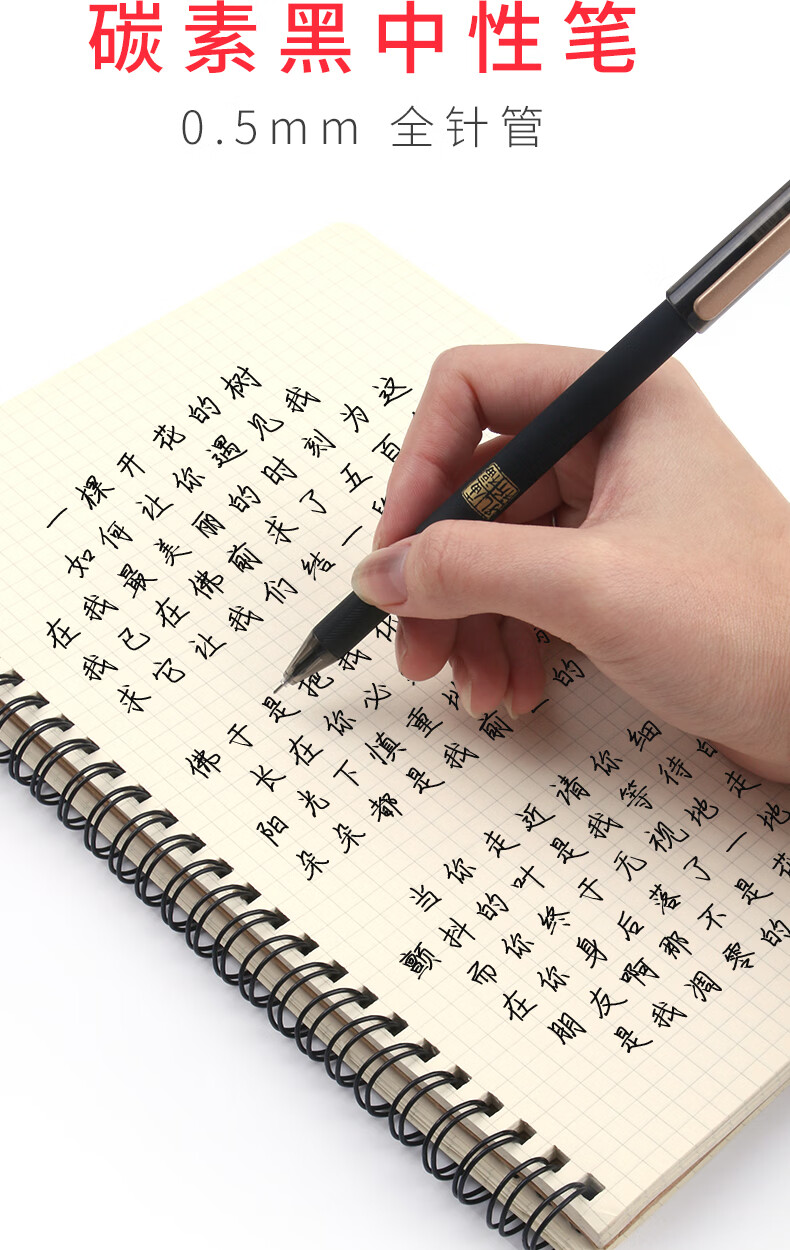 碳素黑中性笔
0.5mm 全针管
一棵开花的树
如何让你遇见我
在我最美丽的时刻为这
我已在佛前求了五百
求它让我们结一段
佛于是把我化
长在你必
阳光下慎重地
朵朵都是我前 的
当你走近请你细
颤抖的叶是我等待的
而你终于无视地走
在你身后落了一地
朋友啊那不是花
是我凋零的